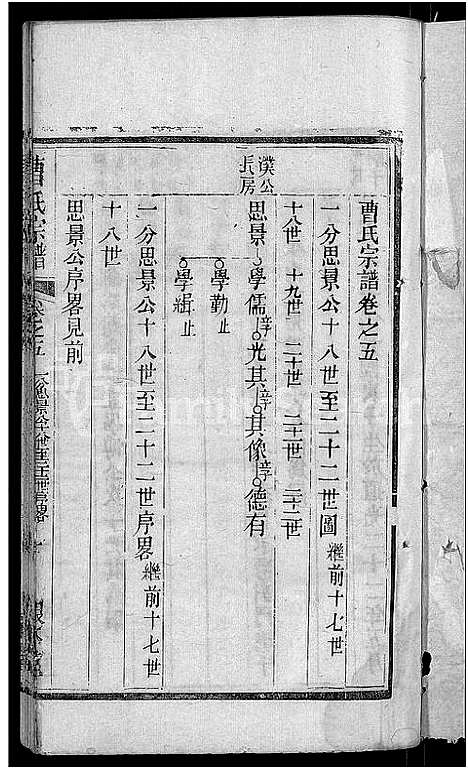 曹氏宗譜卷之五
一分思景公十八世至二十二世圖 繼前十七世
十八世 十九世 二十世 二十一世 二十二世
濮公長房
思景 學儒 子 光其 子 其像 子 德有
學勤 止
學緝 止
一分思景公十八世至二十二世序畧 繼前十七世
十八世
思景公序畧見前
曹氏宗譜 卷之五